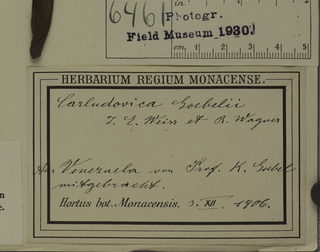 6461
Photogr.
Field Museum 1930.
in
cm 1 2 3 4 5
HERBARIUM REGIUM MONACENSE.
Carludovica Goebelii
J. E. Weiss et R. Wagner
Aus Venezuela von Prof. K. Goebel
mitgebracht.
Hortus bot. Monacensis. 3. XII. 1906.